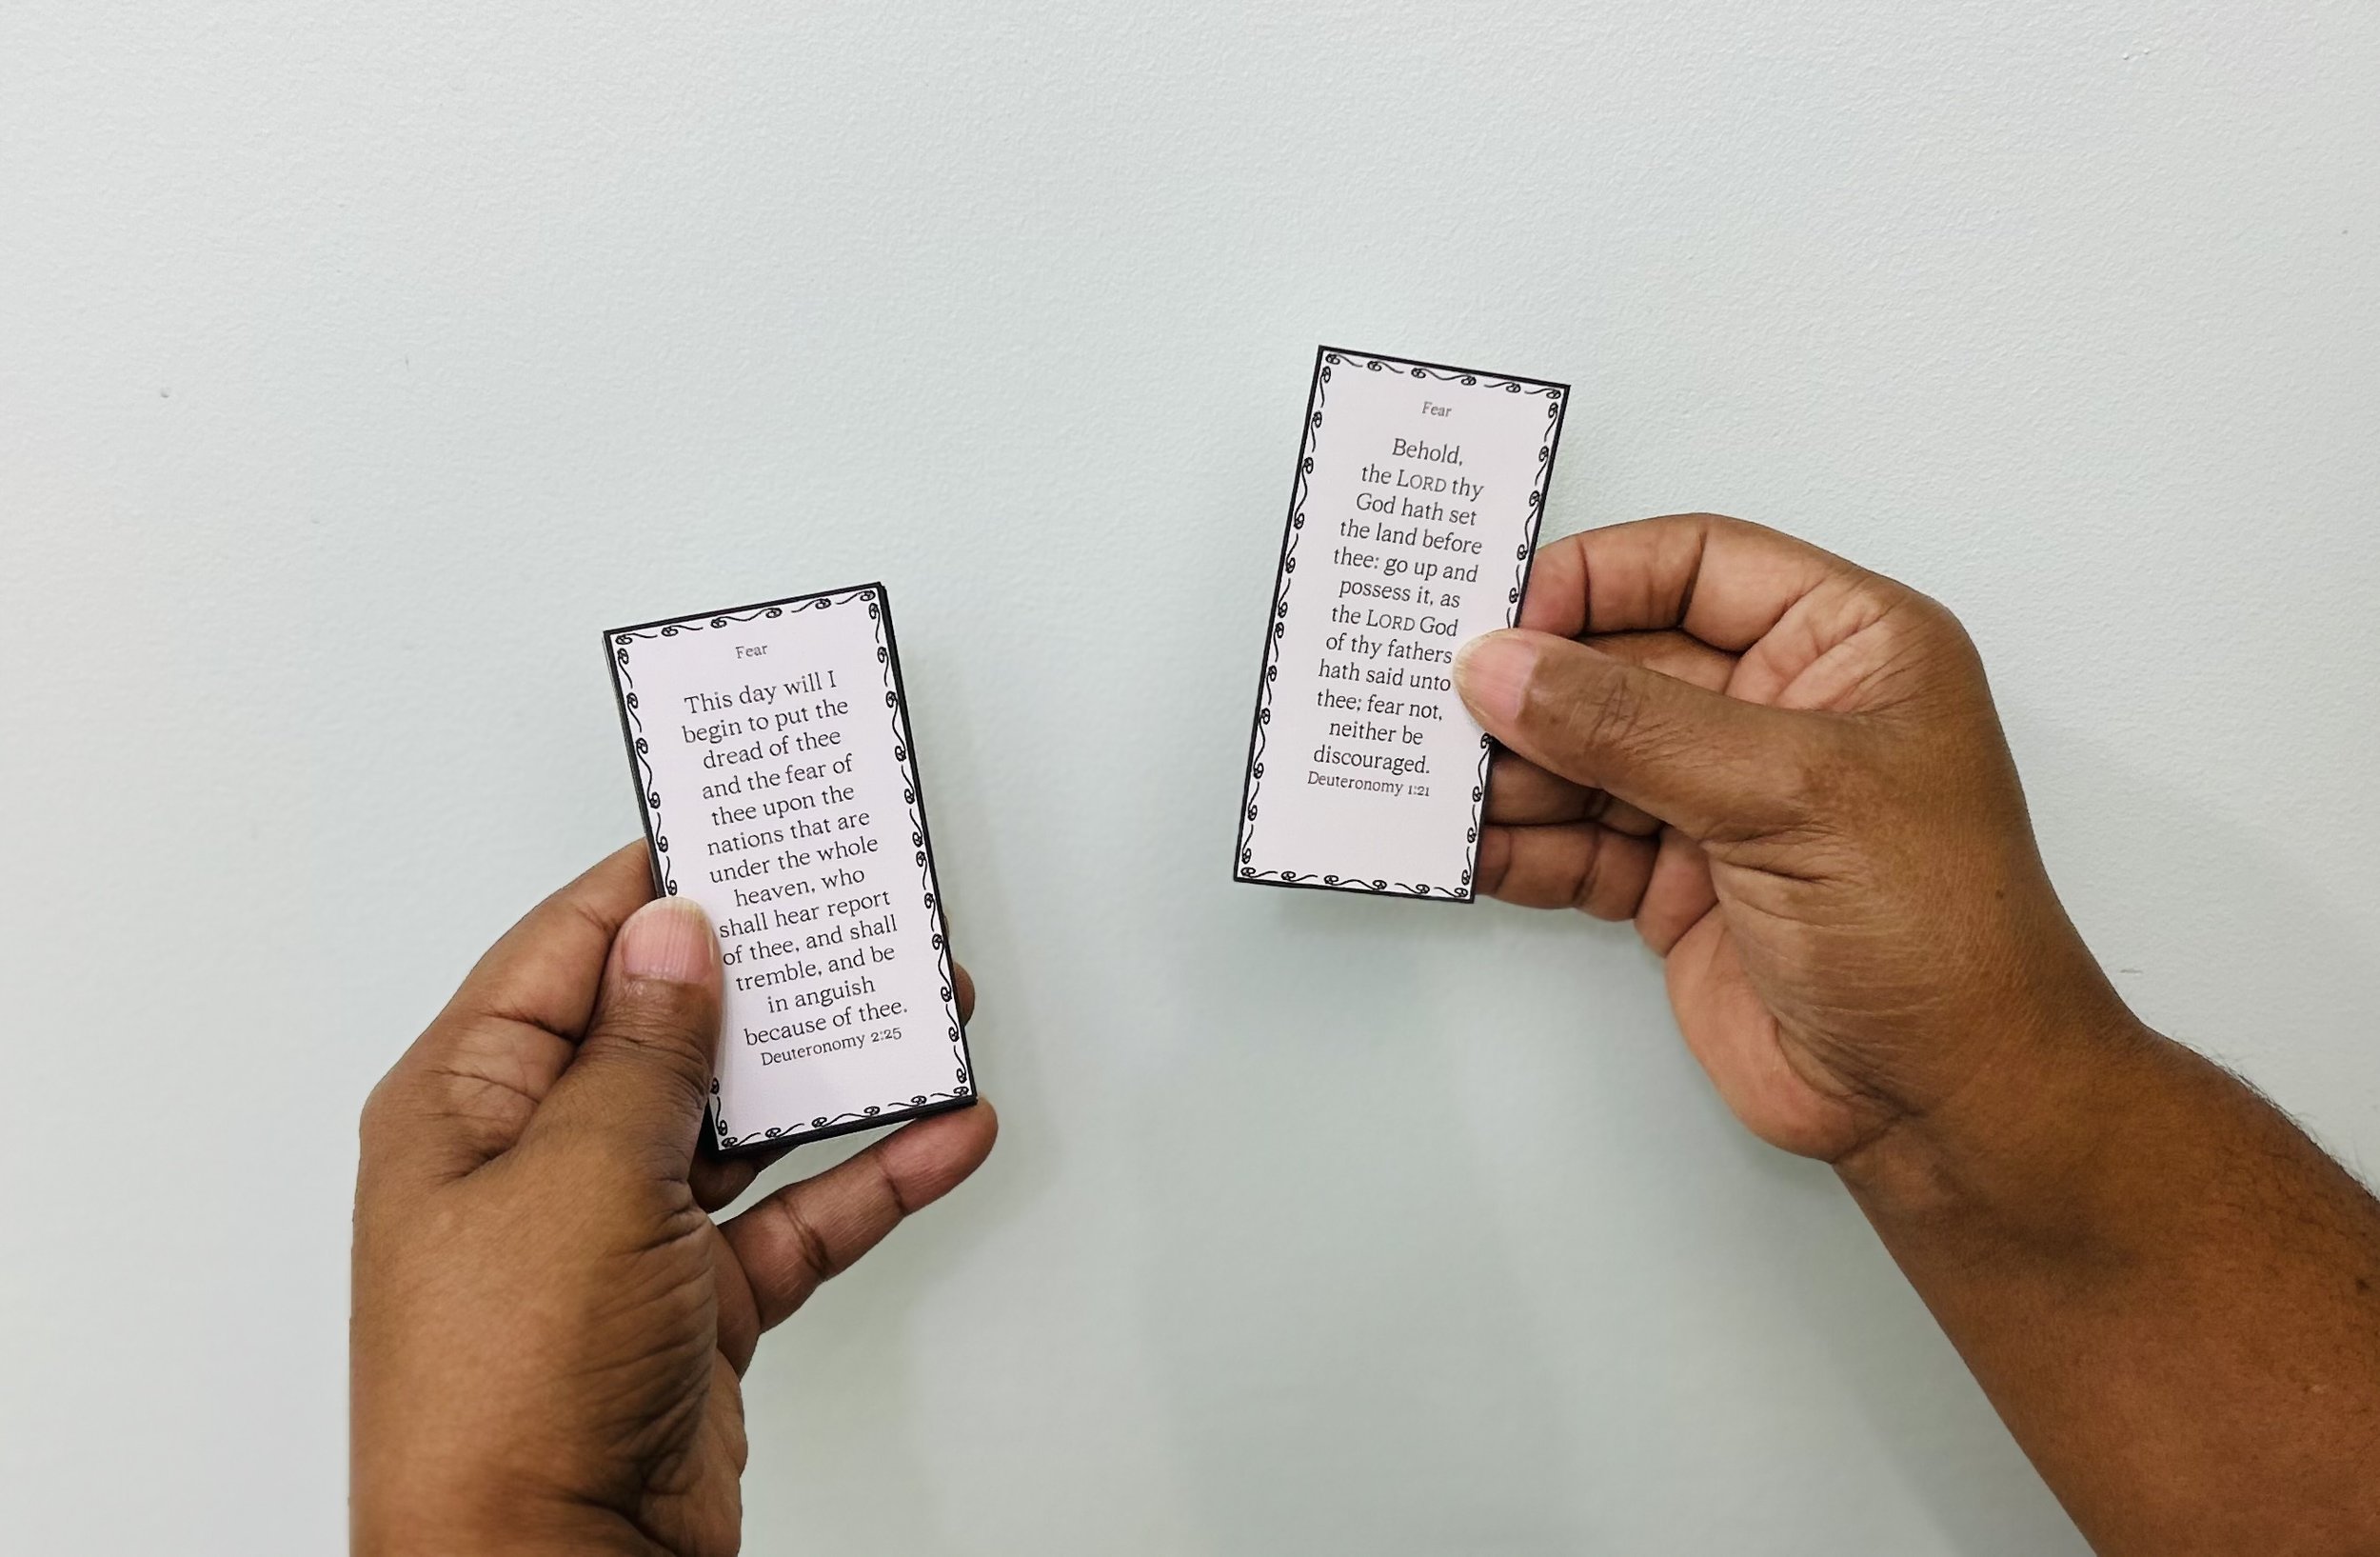 Fear
This day will I
begin to put the
dread of thee
and the fear of
thee upon the
nations that are
under the whole
heaven, who
shall hear report
of thee, and shall
tremble, and be
in anguish
because of thee.
Deuteronomy 2:25
Fear
Behold,
the LORD thy
God hath set
the land before
thee: go up and
possess it, as
the LORD God
of thy fathers
hath said unto
thee; fear not,
neither be
discouraged.
Deuteronomy 1:21